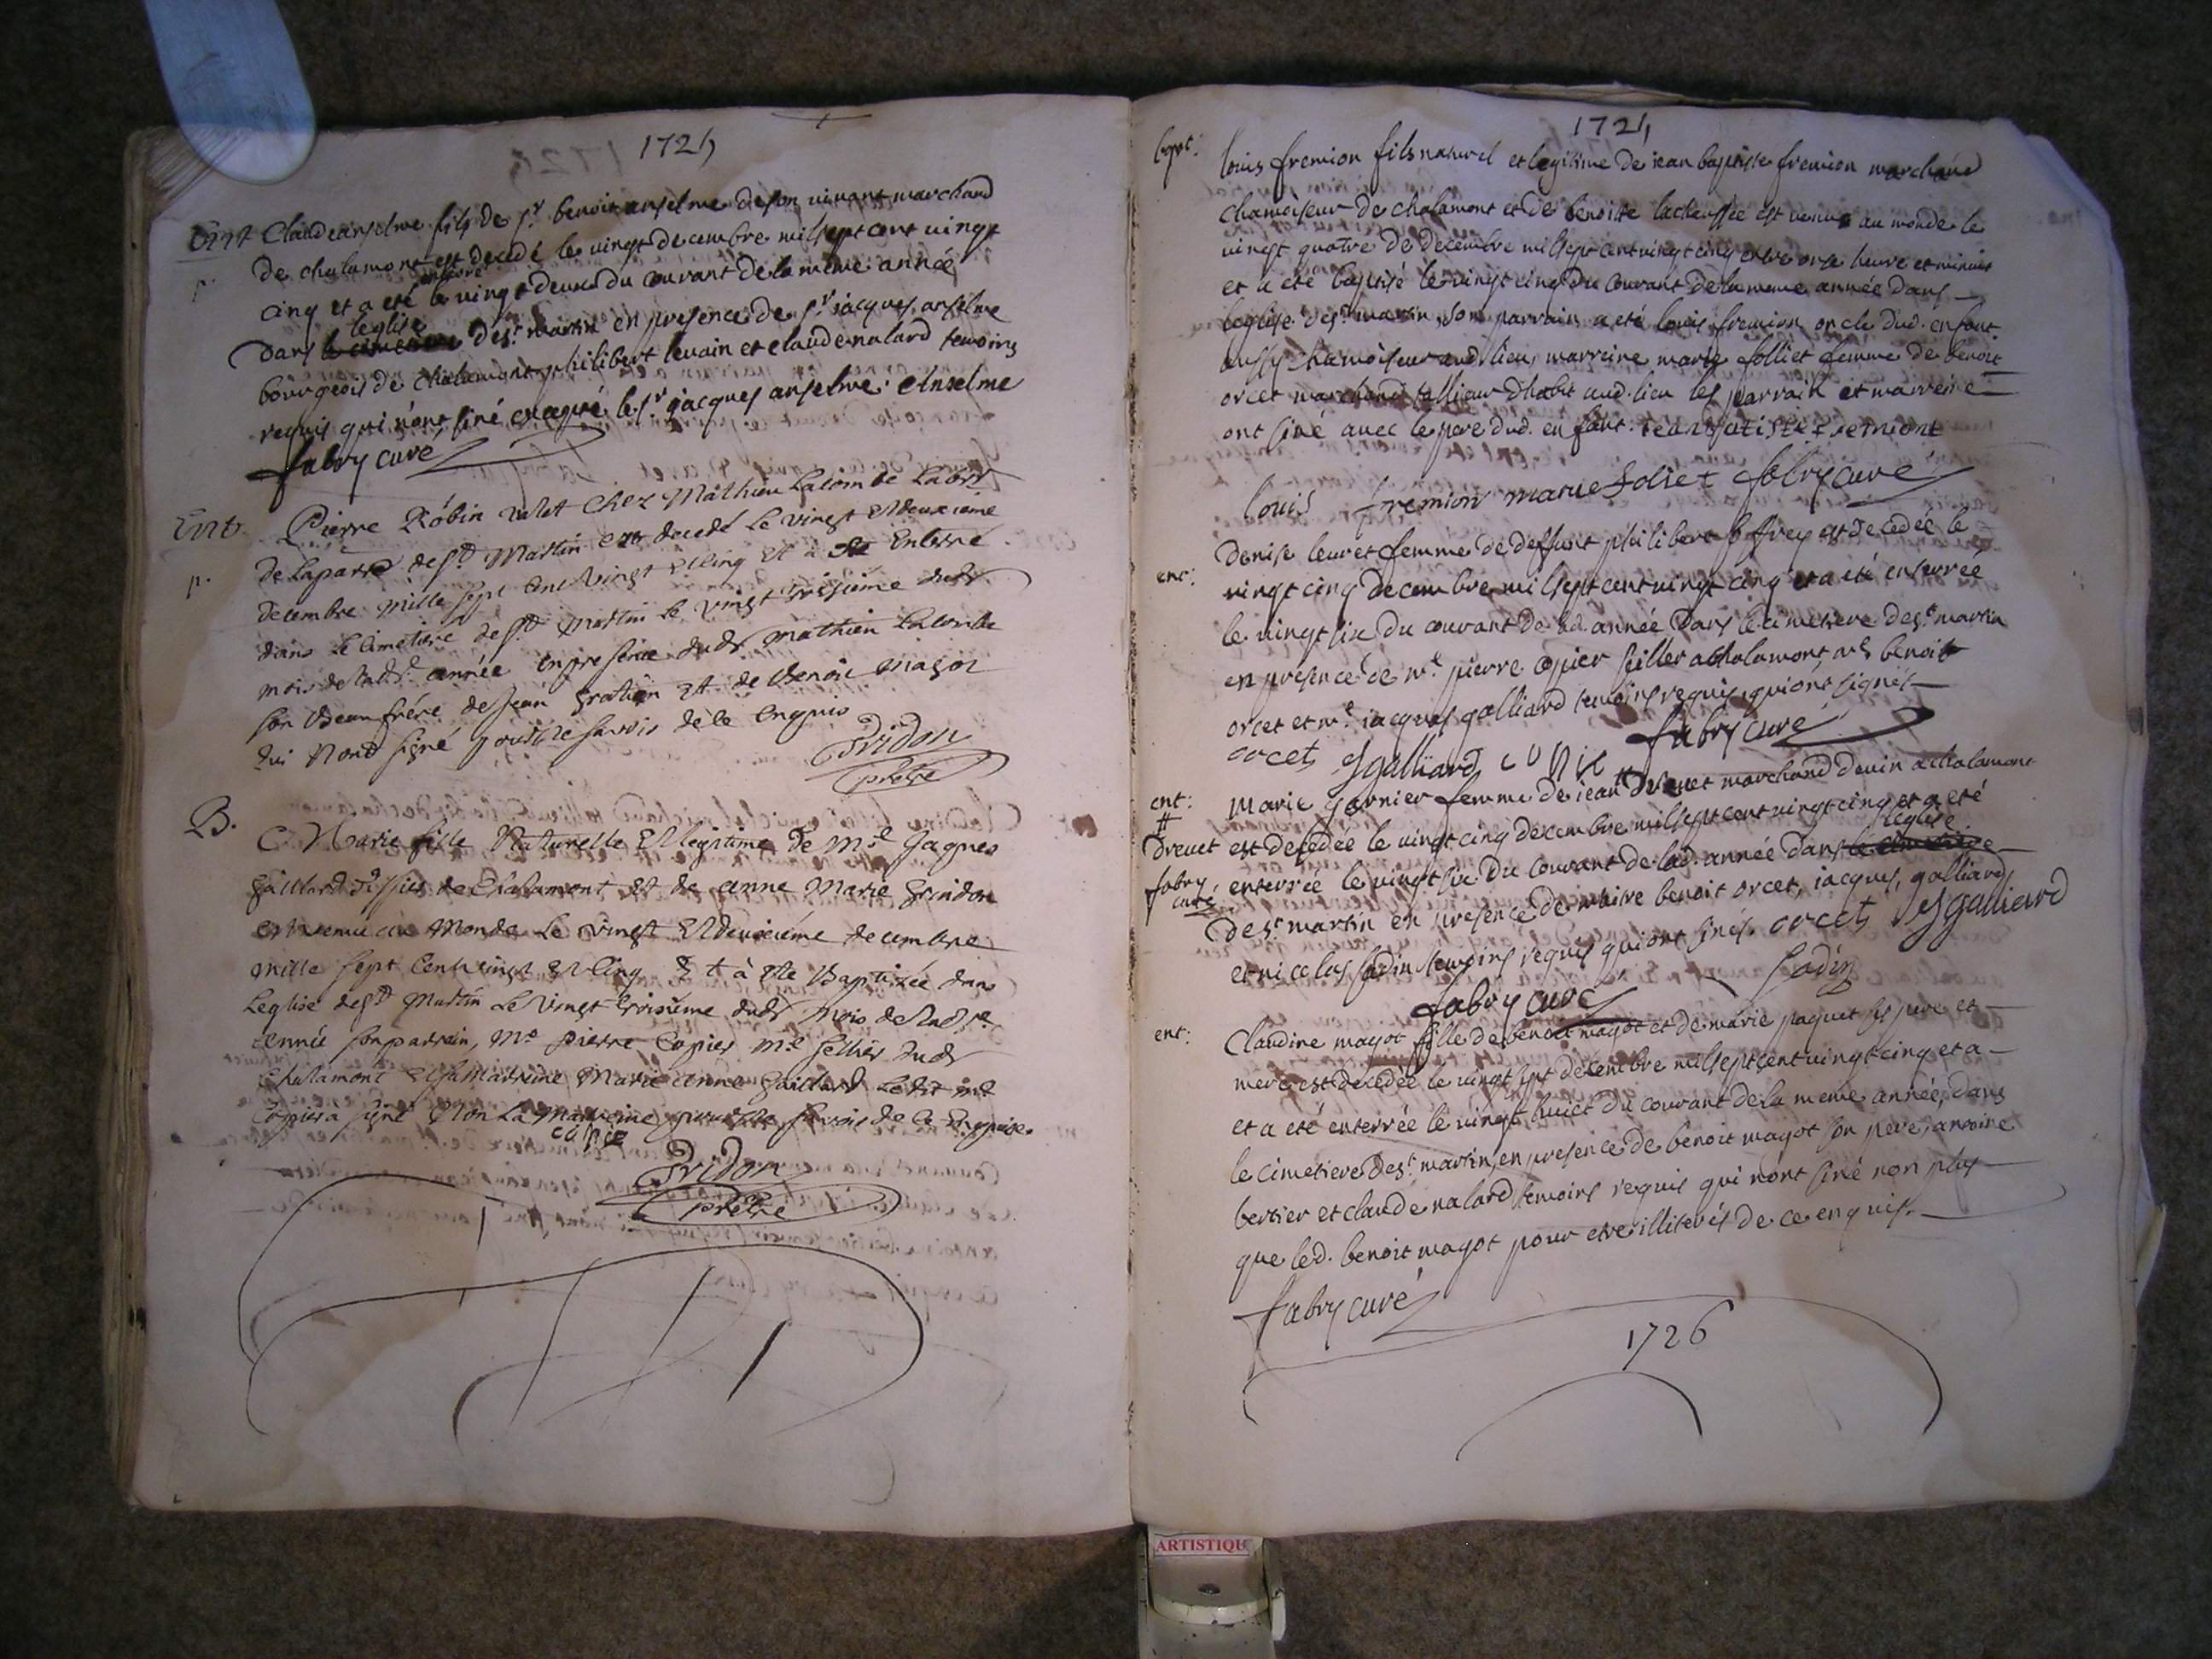 1725
Ent Claude anselme fils de Sr benoit anselme de son vivant marchand
de chalamont est decedé le vingt decembre mil sept cent vingt
cinq et a eté enterré le vingt deux du courant de la meme année
dans l'eglise le cimetiere de st martin en presence de sr jacques anselme
bourgeois de chalamont philibert levain et claude nalard temoins
requis qui n'ont siné excepté le sr jacques anselme. Anselme
fabry curé
Ent. Pierre Robin valet chez Mathieu Lacombe
p. de st Martin decedé le vingt et deuxieme
decembre mille sept cent vingt et cinq et à eté Enterré
dans le cimetiere de st Martin le vingt troisieme dud
mois de lad. année en presence dud mathieu Lacombe
son beau frére de Jean gratien et de Benoit magot
qui n'ont signé pour ne savoir de ce enquis
Pridon
prêtre
B. Marie fille Naturelle et legitime de me Jaques
gaillard de Chalamont et de anne Marie Grindon
est venue au Monde Le vingt et deuxiéme decembre
mille sept cent vingt et cinq et à eté Baptizée dans
Leglise de st Martin Le vingt troisiéme dud mois de lad
année son parrain, me pierre Copier me sellier dud
Chalamont et sa marreine Marie anne Gaillard Ledit me
Copier à signé et non La marreine pour ne savoir de ce enquise.
copie
Pridon
prêtre
1725
bapt. louis fremion fils naturel et legitime de jean baptiste fremion marchand
chamoiseur de chalamont et de benoiste lachaussée est venus au monde le
vingt quatre de decembre mil sept cent vingt cinq entre onze heure et minuit
et a été baptisé le vingt cinq du courant de la meme année dans
l'eglise de st martin, son parrain a eté louis fremion oncle dud. enfant
aussy chamoiseur aud. lieu, marreine marie folliet femme de benoit
orcet marchand tallieur d'habit aud. lieu les parrain et marreine
ont siné avec le pere dud. enfant. jean batiste fremiont
louis fremion marie foliet fabry curé
ent: Denise leuret femme de deffunt philibert est decedée le
vingt cinq decembre mil sept cent vingt cinq et a eté enterrée
le vingt six du courant de lad. année dans le cimetiere de st martin
en presence de me pierre copier sellier a chalamont, me benoit
orcet et me jacques galliard temoins requis, qui ont signés
orcet Jgalliard copie fabry curé
ent: Marie garnier femme de jean # drevet marchand de vin a chalamont
# drevet est decedée le vingt cinq decembre mil sept cent vingt cinq et a eté
fabry curé enterrée le vingt six du courant de lad. année dans l'eglise le cimetiere
de st martin en presence de maitre benoit orcet, jacques, galliard
et nicolas fadin temoins requis qui ont sinés. orcet Jgalliard
fadin
fabry curé
ent: Claudine magot fille de benoit magot et de marie paquet ses pere et
mere est decedée le vingt sept decembre mil sept cent vingt cinq et a
et a eté enterrée le vingt huict du courant de la meme année, dans
le cimetiere de st martin, en presence de benoit magot son pere, antoine
bertier et claude nalard temoins requis qui n'ont siné non plus
que led. benoit magot pour etre illiterés de ce enquis.
fabry curé
1726
ARTISTIQU